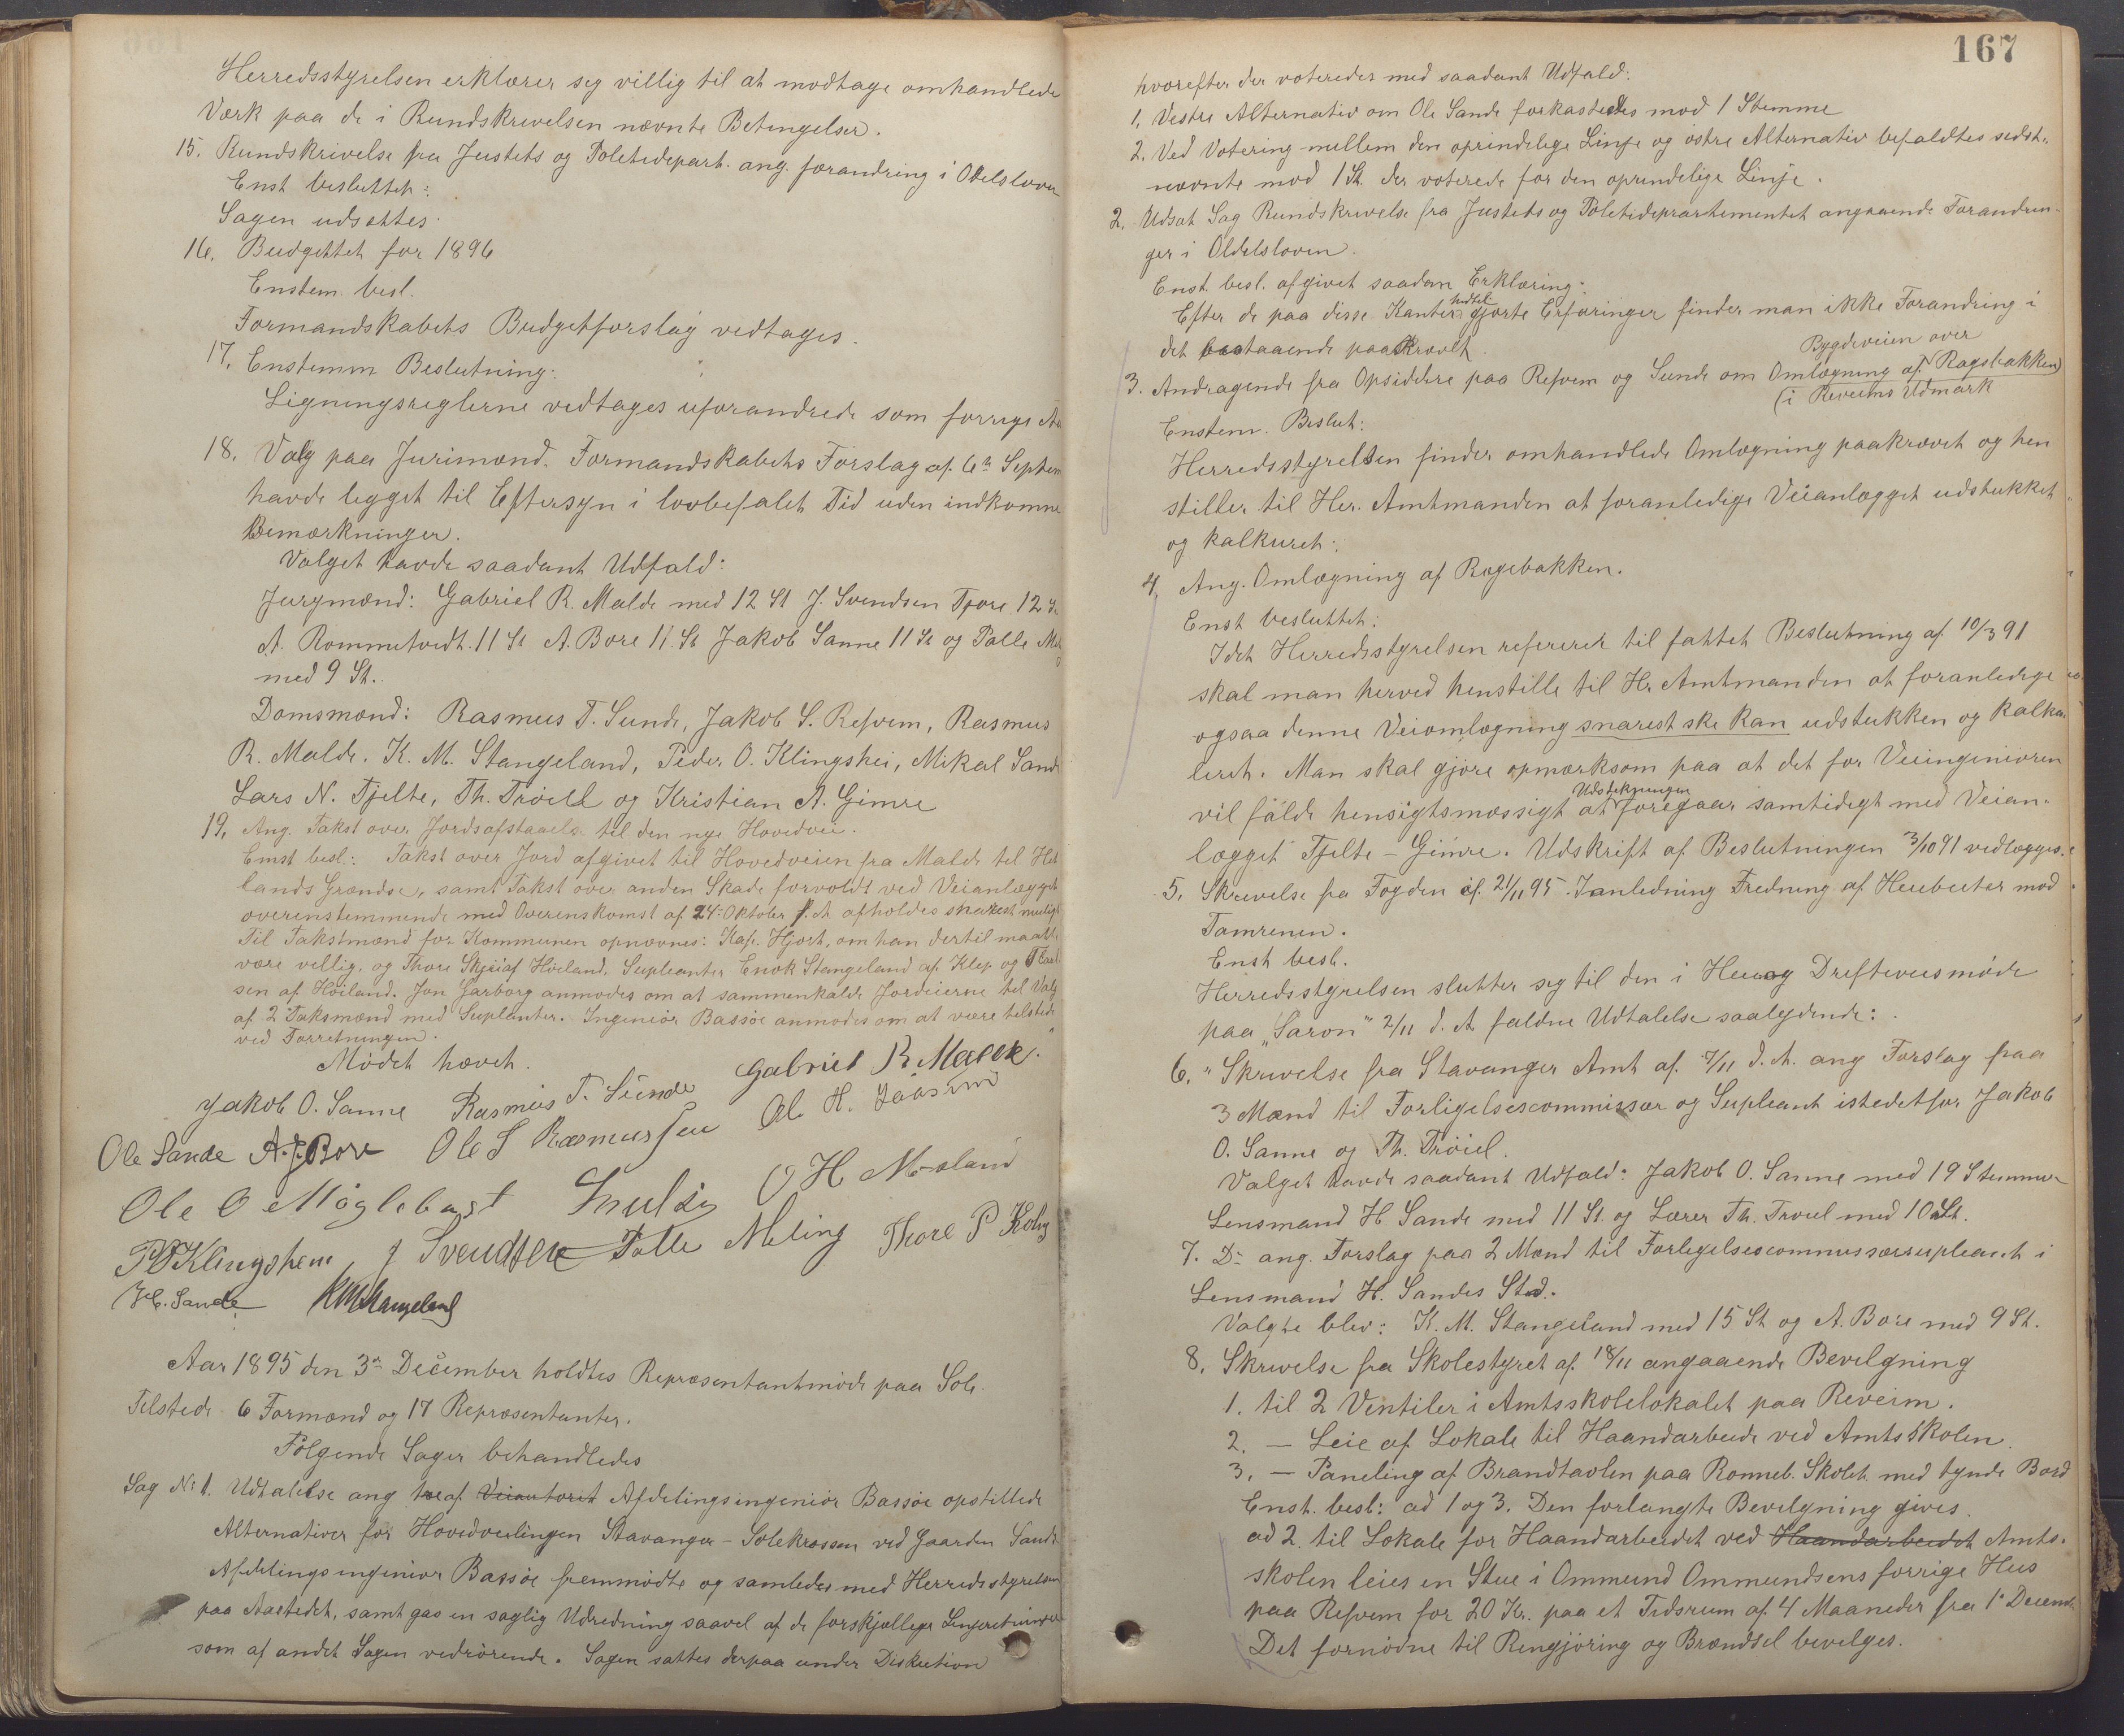 Herredsstyrelsen erklærer seg villig til at modtage omhandlede
Værk paa de i Rundskrivelsen nævnte Betingelser.
15. Rundskrivelse fra Justits og Politidepart. ang. forandring i Odelsloven
Enst besluttet:
Sagen udsættes.
16. Budgettet for 1896
Enstem. besl.
Formandskabets Budgetforslag vedtages.
17. Enstemm Beslutning:
Ligningsreglerne vedtages uforandrede som forrige Aar
18. Valg paa Jurimænd. Formandskabets Forslag af 6te Septem
havde legget til Eftersyn i lovbefalet Tid uden indkomne
Bemærkninger.
Valget havde saadant Udfald:
Jurymænd: Gabriel R. Malde med 12 St J. Svendsen Tjore 12 St
A. Rommetvedt. 11 St A. Bore 11. St Jakob Sanne 11 St og Palle
med 9 St.
Domsmænd: Rasmus T. Sunde, Jakob S. Refvem, Rasmus
R. Malde. K. M. Stangeland, Peder O. Klingshei, Mikal Sande
Lars N. Tjelte, Th. Tröiel og Kristian A. Gimre
19. Ang. Takst over Jordsafstaaelse til den nye Hovedvei.
Enst besl.: Takst over Jord afgivet til Hovedveien fra Malde til Het
lands Grændse, samt Takst over anden Skade forvoldt ved Veianlægget
overenstemmende med Overenskomst af 24de Oktober f. A. afholdes snarest muligt
Til Takstmænd for Kommunen opnævnes: Kap. Hjort, om han dertil maatte
være villig, og Thore Skjeie af Höiland. Supleanter Enok Stangeland af Klep og
sen af Höiland. Jon Garborg anmodes om at sammenkalde Jordeierne til Valg
af 2 Taksmænd med Suplanter. Ingeniör Bassöe anmodes om at være tilstede
ved Forretningen.
Mödet hævet.
Jakob O. Sanne Rasmus T. Sunde Gabriel R. Malde.
Ole Sande A. J. Bore Ole S Rasmussen Ol. H. Jaasund
Ole O Möglebust O H Mosland
P O Klingsheim J Svendsen Palle Meling Thore P
H. Sande. K M Stangeland
Aar 1895 den 3de December holdtes Repræsentantmöde paa Sole.
Tilstede 6 Formænd og 17 Repræsentanter.
Fölgende Sager behandledes
Sag No 1. Udtalelse ang tre af Veiautorit Afdelingsingeniör Bassöe opstillede
Alternativer for Hovedveilinjen Stavanger - Solekrossen ved Gaarden Sande
Afdelingsingeniör Bassöe fremmödte og samledes med Herredsstyrelsen
paa Aastedet, samt gav en saglig Udredning saavel af de forskjellige Linjeretninger
som af andet Sagen vedrörende. Sagen sattes derpaa under Diskution
167
hvorefter der votered​es med saadant Udfald:
1. Vestre Alternativ om Ole Sande forkastedes mod 1 Stemme
2. Ved Votering mellem den oprindelige Linje og östre Alternativ befaldtes sidst-
nævnte mod 1 St. der voterede for den oprindelige Linje.
2. Udsat Sag Rundskrivelse fra Justits og Politideprartementet angaaende Forandrin-
ger i Oldelsloven.
Enst. besl. afgivet saadan Erklæring:
Efter de paa disse Kanter hidtil gjorte Erfaringer finder man ikke Forandring i
det bestaaende paakrævet.
3. Andragende fra Opsiddere paa Refvem og Sunde om Omlægning af Bygdeveien over Ragsbakken
(i Reveims Udmark)
Enstem. Beslut:
Herredsstyrelsen finder omhandlede Omlægning paakrævet og hen
stiller til Her. Amtmanden at foranledige Veianlægget udstukket
og kalkuret.
4. Ang. Omlægning af Ragebakken.
Enst besluttet:
Idet Herredsstyrelsen refererer til fattet Beslutning af 10/3 91
skal man herved henstille til Hr. Amtmanden at foranledige
ogsaa denne Veiomlægning snarest ske kan udstukken og kalku
leret. Man skal gjöre opmærksom paa at det for Veiingeniören
vil falde hensigtsmæssigt at Udstikningen foregaar samtidigt med Veian-
lægget Tjelte - Gimre. Udskrift af Beslutningen 3/10 91 vedlægges.
5. Skrivelse fra Fogden af 21/11 95. I anledning Fredning af Heibeiter mod
Tamrenen.
Enst besl.
Herredsstyrelsen slutter sig til den i Heieog Drifteveismöde
paa „Saron" 2/11 d. A. faldne Udtalelse saalydende:
6. " Skrivelse fra Stavanger Amt af 7/11 d. A. ang Forslag paa
3 Mænd til Forligelsescommissær og Supleant istedetfor Jakob
O. Sanne og Th. Tröiel.
Valget havde saadant Udfald: Jakob O. Sanne med 19 Stemmer
Lensmand H. Sande med 11 St. og Lærer Th. Tröiel med 10 St.
7. Do ang. Forslag paa 2 Mænd til Forligelsescommissærsupleant i
Lensmand H. Sandes Sted.
Valgte blev: K. M. Stangeland med 15 St og A. Bore med 9 St.
8. Skrivelse fra Skolestyret af 18/11 angaaende Bevilgning
1. til 2 Ventiler i Amtsskolelokalet paa Reveim.
2. — Leie af Lokale til Haandarbeide ved Amtsskolen.
3. — Paneling af Brandtavlen paa Ronneb. Skole med tynde Bord
Enst. besl: ad 1 og 3. Den forlangte Bevilgning gives.
ad 2. til Lokale for Haandarbeidet ved Haandarbeidet Amts-
skolen leies en Stue i Ommund Ommundsens forrige Hus
paa Refvem for 20 Kr. paa et Tidsrum af 4 Maaneder fra 1ste Decemb.
Det fornödne til Rengjöring og Brændsel bevilges.